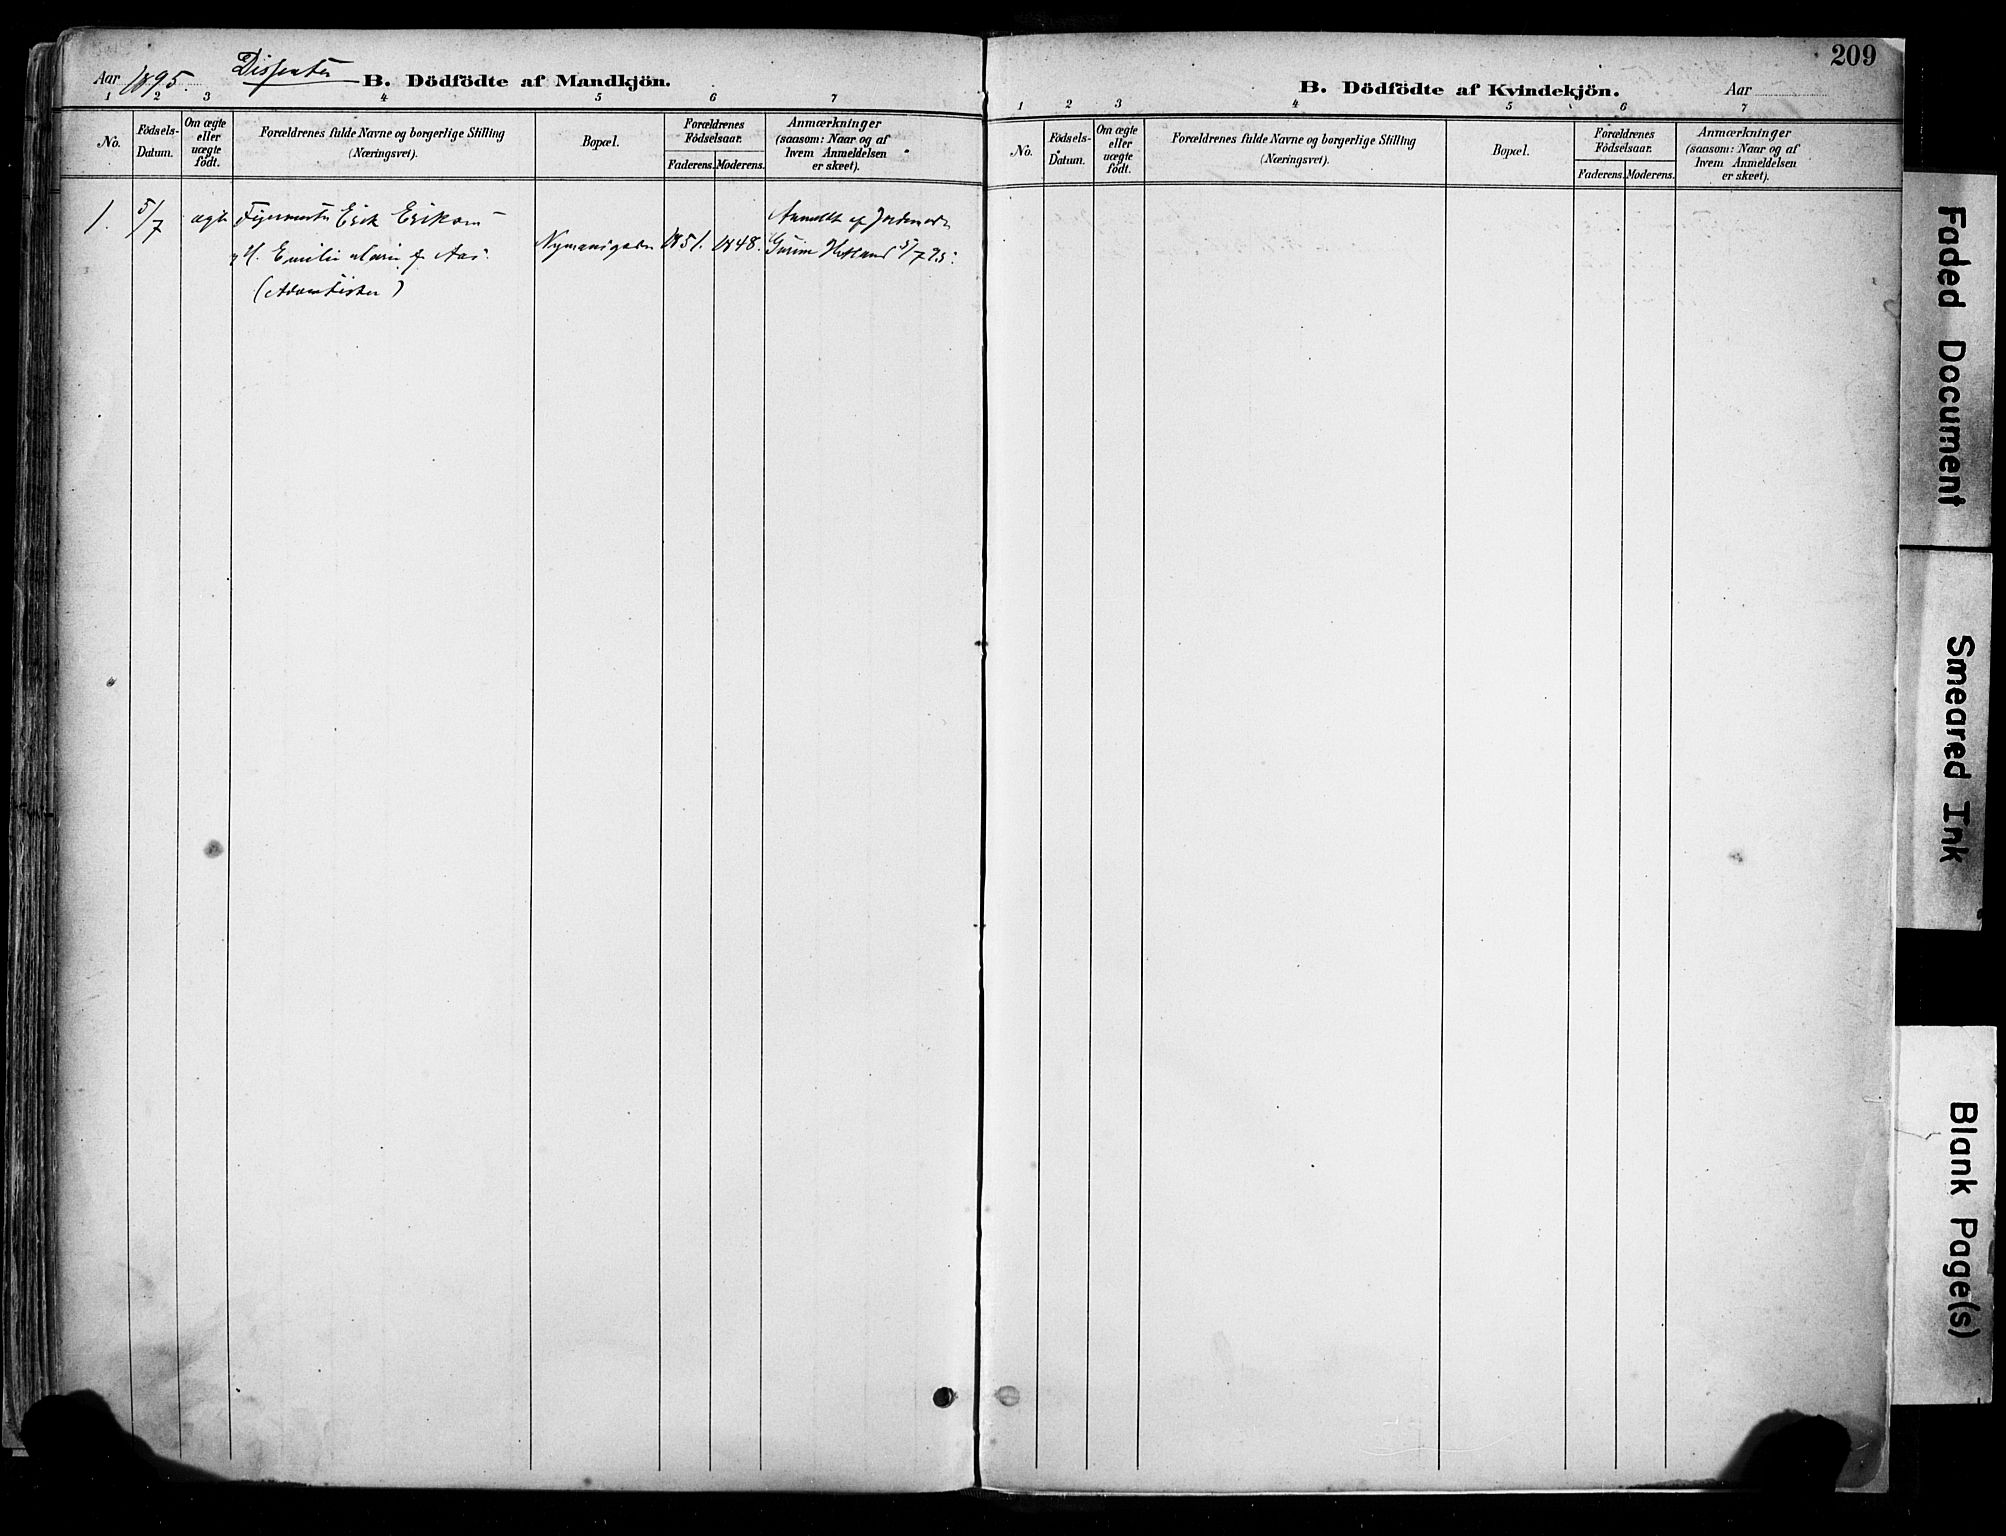 Aar 1895. Dissenter B. Dödfödte af Mandkjön.
1 2 3 4 5 6 7
No.
Födsels-Datum.
Om ægte eller uægte födt.
Forældrenes fulde Navne og borgerlige Stilling
(Næringsvei).
Bopæl.
Forældrenes Födselsaar.
Faderens. Moderens.
Anmærkninger
(saasom: Naar og af
hvem Anmeldelsen
er skeet).
1. 5/7 ægte Erik Erikson
H. Emilie Marie f. Aas.
(Adventister)
Nymansgaden 1851. 1848.
Anmeldt af Jordemoder
Hetland 5/7 95.
209
B. Dödfödte af Kvindekjön. Aar
1 2 3 4 5 6 7
No.
Födsels-Datum.
Om ægte eller uægte födt.
Forældrenes fulde Navne og borgerlige Stilling
(Næringsvei).
Bopæl.
Forældrenes Födselsaar.
Faderens. Moderens.
Anmærkninger
(saasom: Naar og af
hvem Anmeldelsen
er skeet).
Faded Document
Smeared Ink
Blank Page(s)